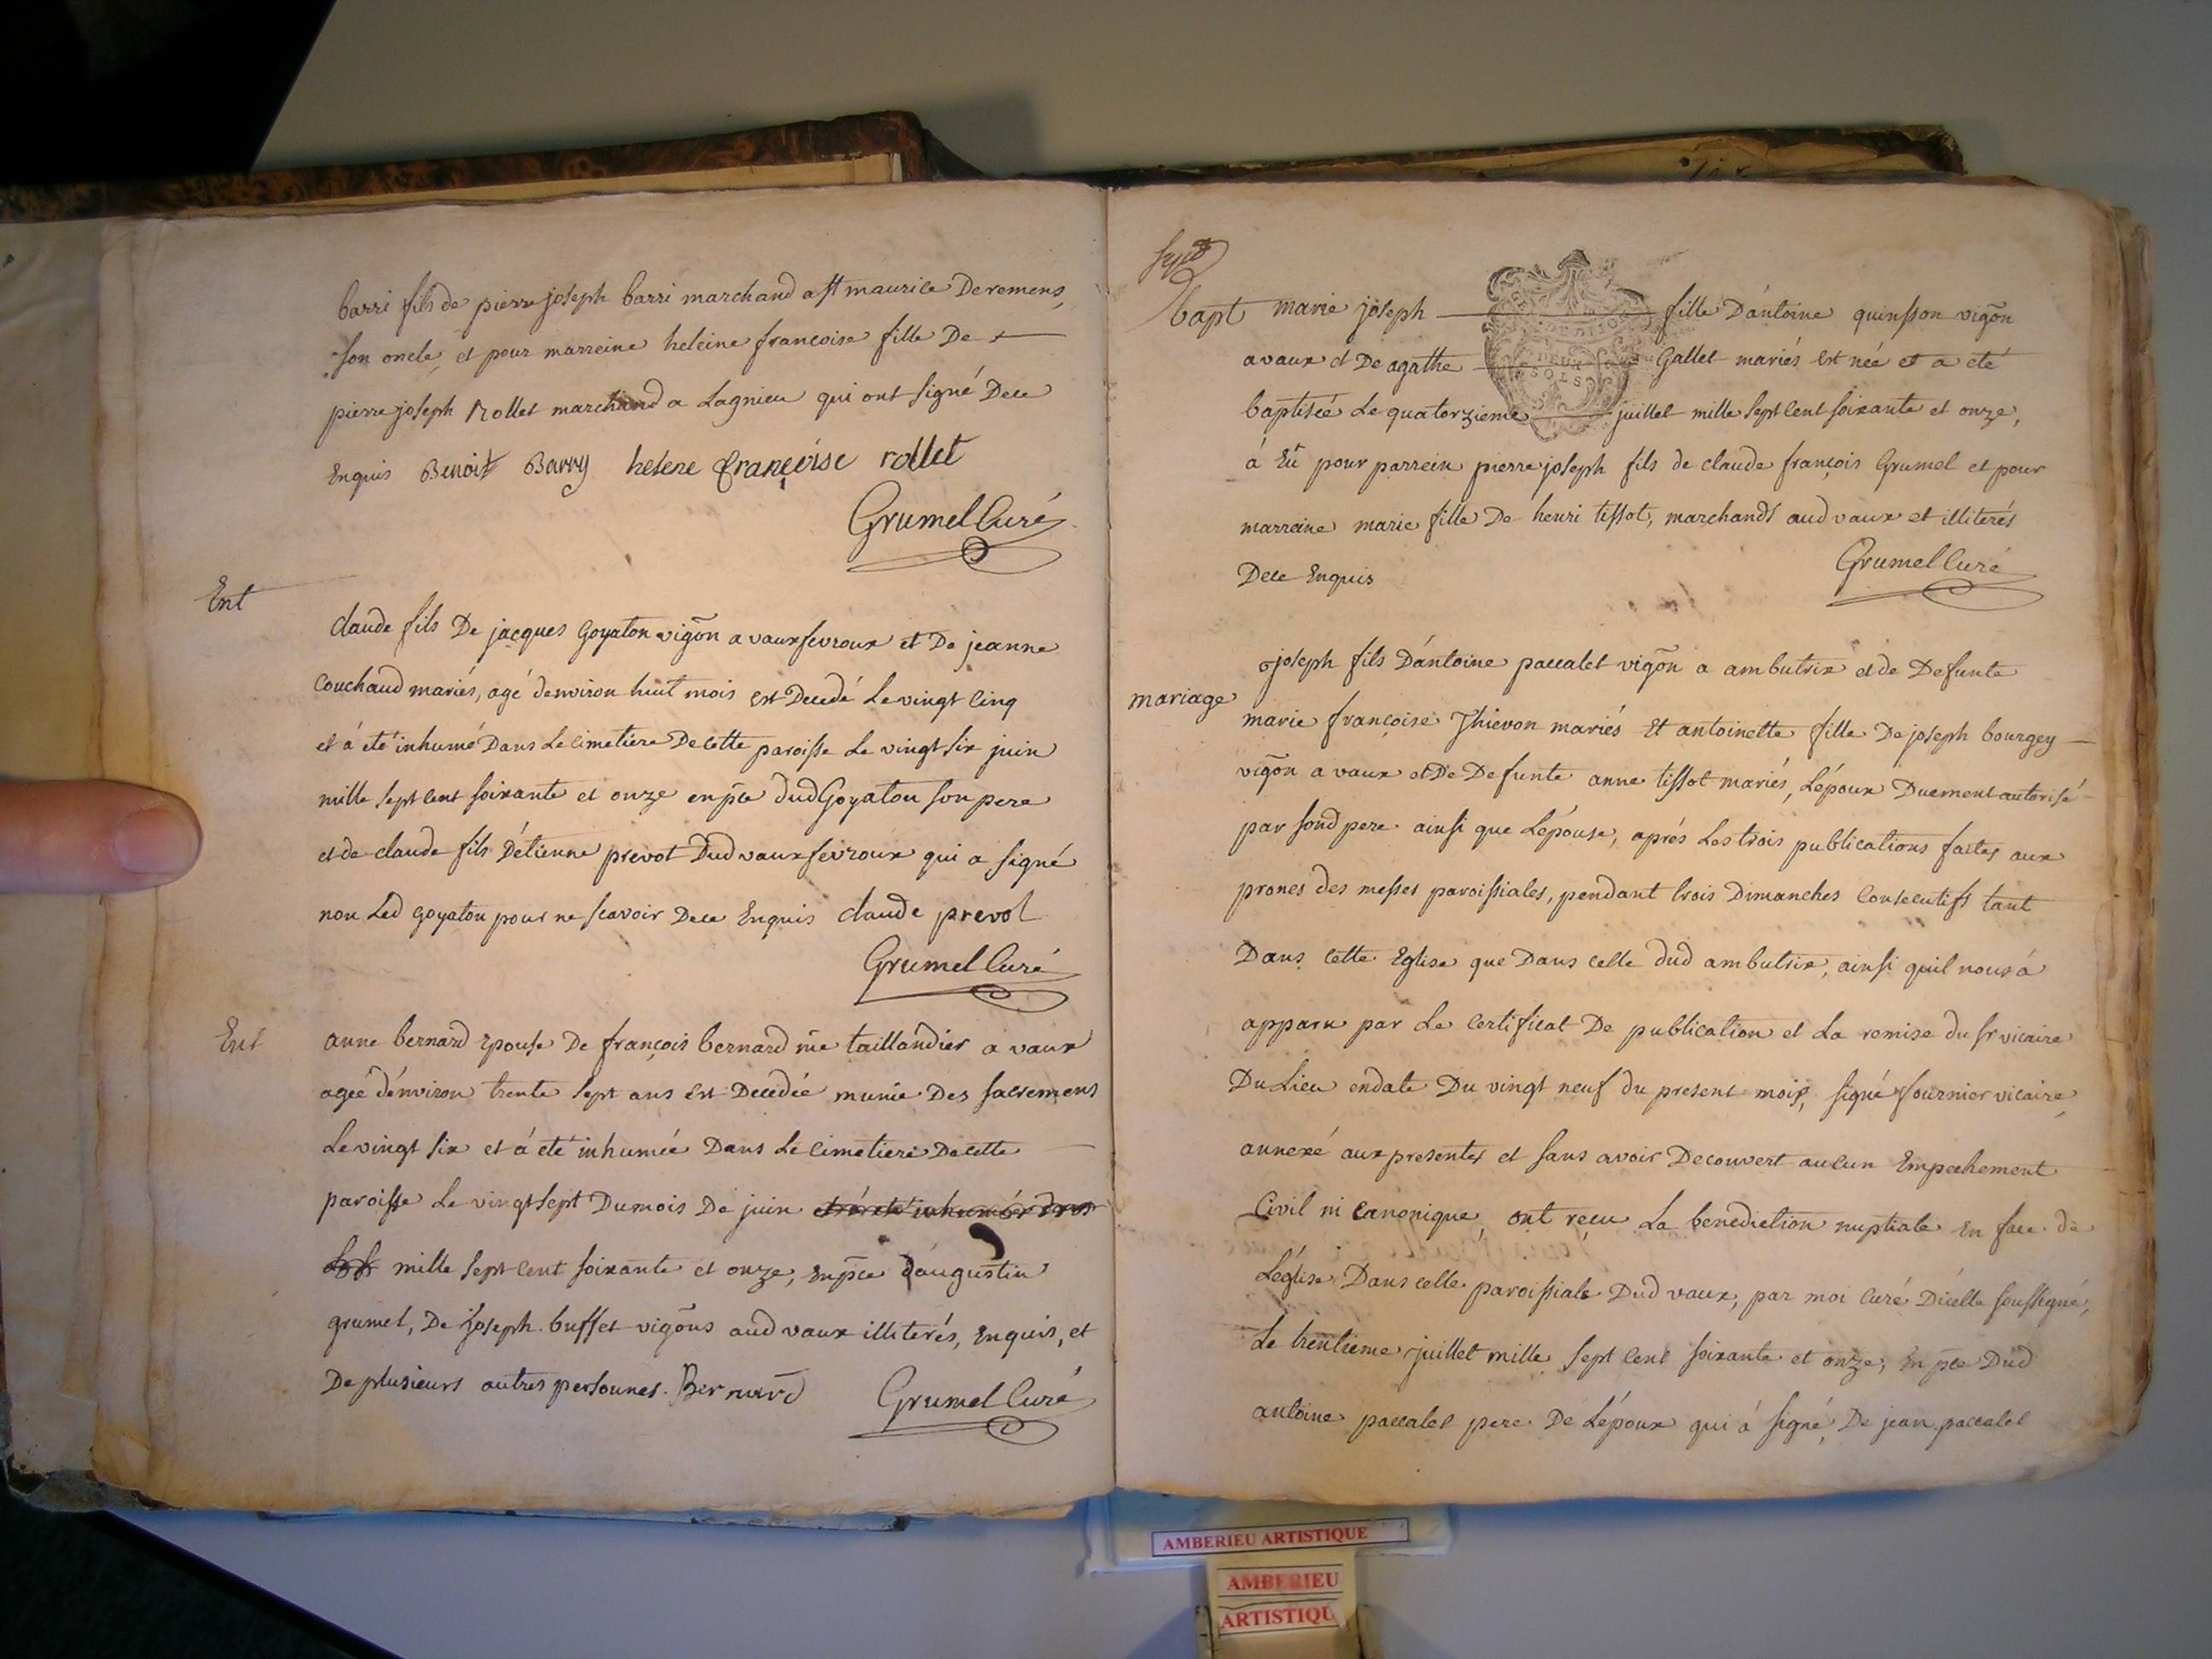 barri fils de pierre joseph barri marchand a st maurice De remens,
son oncle, et pour marreine heleine francoise fille De
pierre joseph Rollet marchand a Lagnieu qui ont signé Dece
Enquis Benoit Barry helene françoise rollet
Grumel Curé
Ent
claude fils De jacques Goyaton vigõn a vaux fevroux et De jeanne
Couchaud mariés, agé denviron huit mois est Decedé Le vingt cinq
et á eté inhumé Dans Le cimetiere De cette paroisse Le vingt six juin
mille sept cent soixante et onze en pce dud Goyaton son pere
et de claude fils D'etienne prevot Dud vaux fevroux qui a signé
non Led goyaton pour ne scavoir Dece Enquis claude prevot
Grumel Curé
Ent
anne bernard Epouse De françois bernard me taillandier a vaux
agée d'environ trente sept ans est Decedée munie Des sacremens
Le vingt six et á eté inhumée Dans Le cimetiere De cette
paroisse Le vingt sept Du mois De juin et á eté inhumée dans
mille sept cent soixante et onze, en pce d'augustin
grumel, De joseph buffet vigõns aud vaux illiterés, Enquis, et
De plusieurs autres personnes. Bernard Grumel Curé
bapt
marie joseph fille D'antoine quinsson vigõn
a vaux et De agathe Gallet mariés est née et a eté
baptisée Le quatorzieme juillet mille sept cent soixante et onze,
á Eu pour parrein pierre joseph fils de claude françois Grumel et pour
marreine marie fille De henri tissot, marchands aud vaux et illiterés
Dece Enquis
Grumel Curé
DEUX
SOLS
mariage
joseph fils D'antoine paccalet vigõn a ambutrix et de Defunte
marie françoise Thievon mariés Et antoinette fille De joseph bourgey
vigõn a vaux et De Defunte anne tissot mariés, L'époux Duement autorisé
par sond pere ainsi que L'épouse, aprés Les trois publications faites aux
prones des messes paroissiales, pendant trois Dimanches Consecutifs tant
Dans cette Eglise que Dans celle dud ambutrix, ainsi quil nous á
apparu par Le Certificat De publication et La remise du sr vicaire
Du Lieu en date Du vingt neuf du present mois, signé fournier vicaire,
annexé aux presentes et sans avoir Decouvert aucun Empechement
Civil ni Canonique, ont reçu La benediction nuptiale En face de
L'eglise Dans celle paroissiale Dud vaux, par moi Curé D'icelle soussigné,
Le trentieme juillet mille sept cent soixante et onze, En pce Dud
antoine paccalet pere De L'époux qui á signé, De jean paccalet
AMBERIEU ARTISTIQUE
AMBERIEU
ARTISTIQU